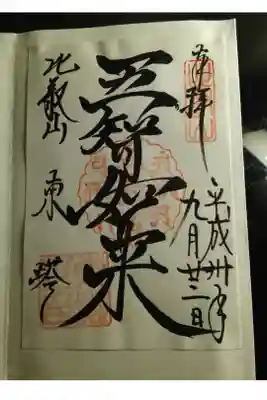 奉拝
平成卅年
九月廿二日
五智如来
比叡山 東塔